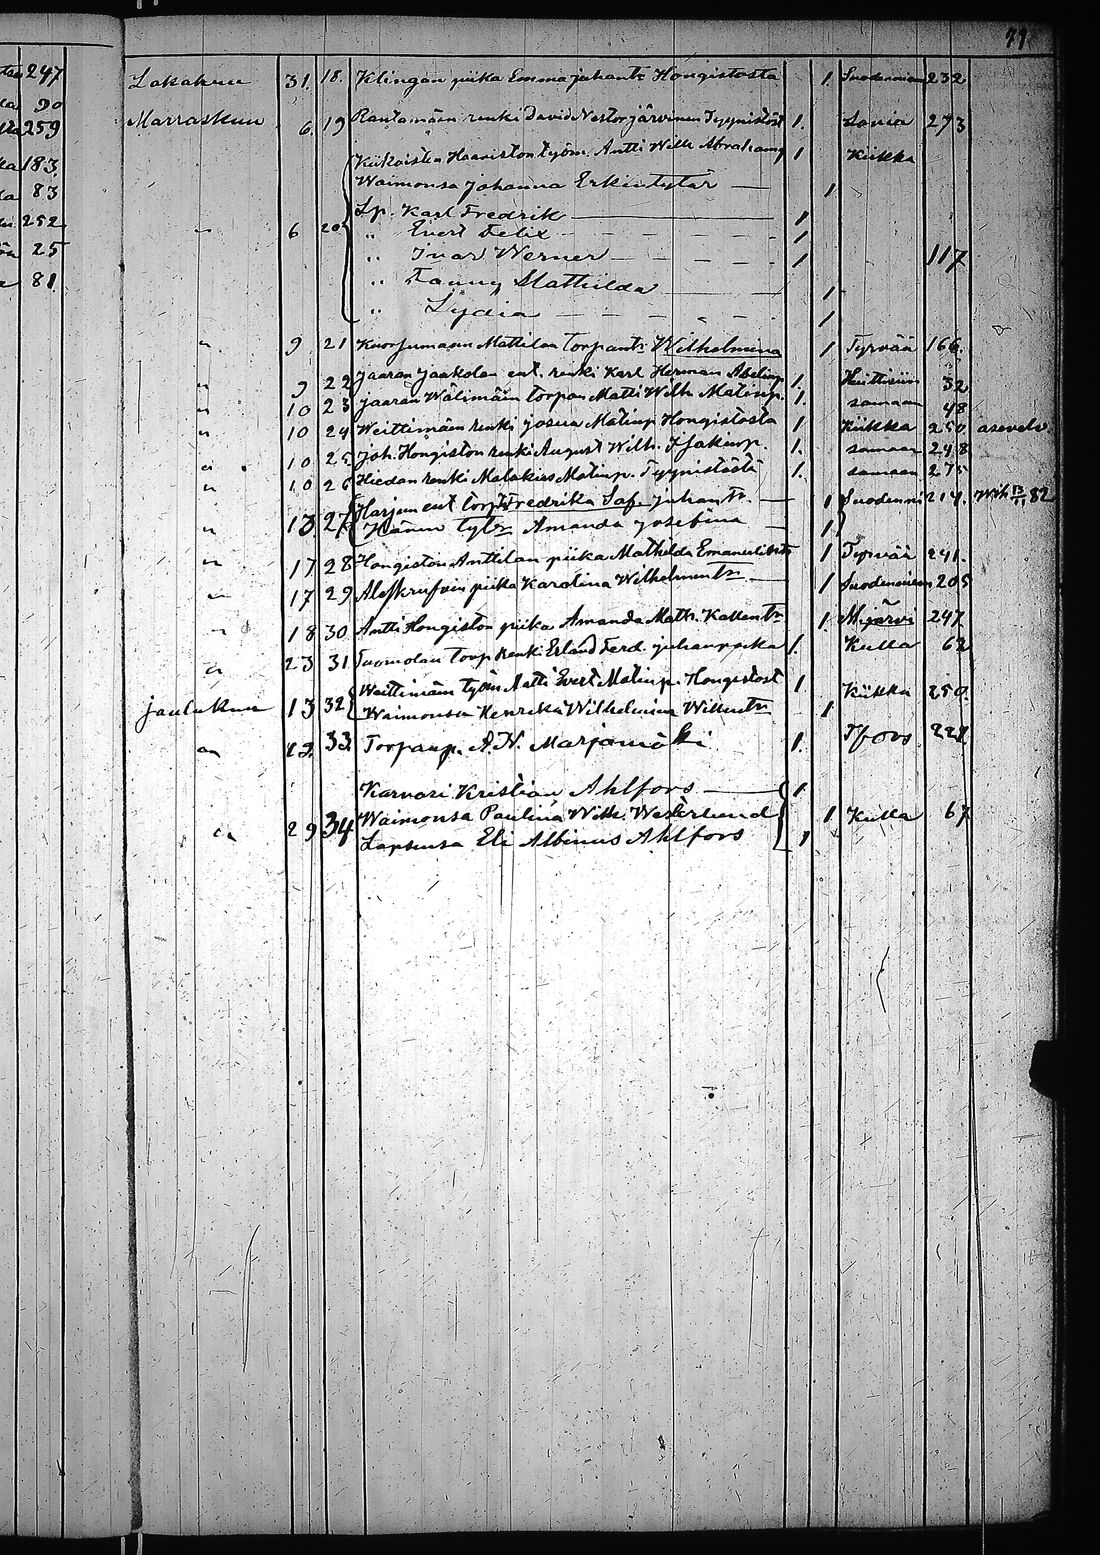 71
247
90
259
183
83
252
25
81
Lokakuu 31. 18. Klingan piika Emma Juhantr Hongistosta 1. Suodenniemi 232
Marraskuu 6. 19 Rantamäen renki David Nestor Järvinen Tyynistöst 1. Lavia 273
Kiikoisten Haaviston työm. Antti Wilh. Abrahamp 1 Kiikka
Waimonsa Johanna Erkintytär — 1
Lp. Karl Fredrik — 1
" 6 20 " Evert Felix — 1
" Ivar Werner — 1 117
" Fanny Mathilda 1
" Lydia — 1
" 9 21 Mattilan torpantr Wilhelmina 1 Tyrvää 166.
" 9 22 Jaaran Jaakolan ent. renki Karl Herman 1. Huittisiin 32
" 10 23 Jaaran Wälimäin torpan Matti Wilh. Matinp. 1. samaan 48
" 10 24 Weittimäen renki Josua Matinp Hongistosta 1 Kiikka 250 asevelv.
" 10 25. Joh. Hongiston renki August Wilh. Isakinp. 1. samaan 248
" 10 26 Hiedan renki Malakias Matinp. Tyynistöstä 1. samaan 275
" 13. 27 Harjun ent torp Fredrika Saf. Juhantr. — 1 Suodenni 214. 82
Hänen tytr Amanda Josefina — 1
" 17 28 Hongiston Anttilan piika Mathilda 1 Tyrvää 241.
" 17 29 piika Karolina Wilhelmentr — 1 Suodenniem 205
" 18 30 Antti Hongiston piika Amanda Math. Kallentr 1. Mjärvi 247
" 23 31 Tuomolan torp. renki Erland Ferd. Juhanpoika 1. Kulla 62
Joulukuu 13 32 Weittimäin työm Antti Evert Matinp. Hongistost 1 Kiikka 250.
Waimonsa Henrika Wilhelmina Willentr 1
" 22. 33. Torpanp. A. N. Marjamäki 1. 221
Karvari Kristian Ahlfors — 1
" 29 34 Waimonsa Paulina Wilh. Westerlund 1 Kulla 67
Lapsensa Eli Albinus Ahlfors 1